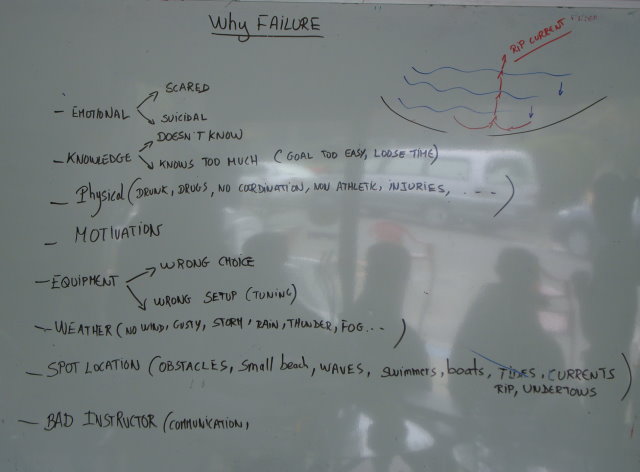 Why FAILURE
RIP CURRENT
- EMOTIONAL
SCARED
SUICIDAL
- KNOWLEDGE
DOESN'T KNOW
KNOWS TOO MUCH (GOAL TOO EASY, LOOSE TIME)
- Physical (DRUNK, DRUGS, NO COORDINATION, NON ATHLETIC, INJURIES, ....)
- MOTIVATION
- EQUIPMENT
WRONG CHOICE
WRONG SETUP (TUNING)
- WEATHER (NO WIND, GUSTY, STORM, RAIN, THUNDER, FOG...)
- SPOT LOCATION (OBSTACLES, Small beach, WAVES, swimmers, boats, TIDES, CURRENTS
RIP, UNDERTOWS)
- BAD INSTRUCTOR (COMMUNICATION,